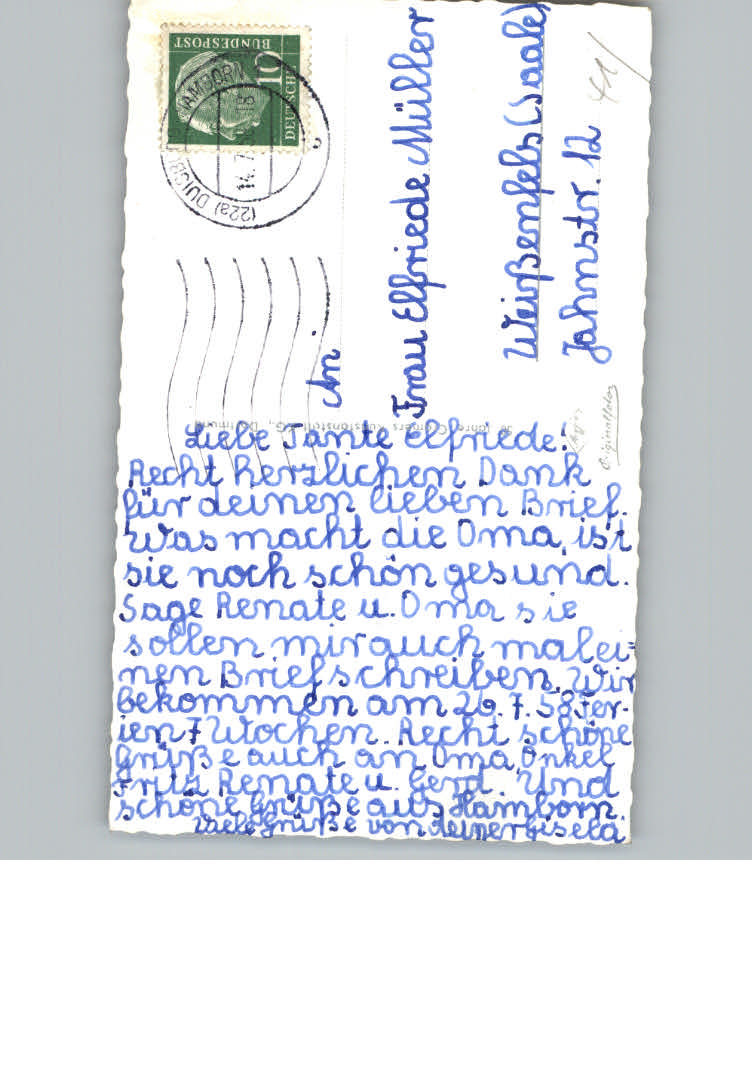 DEUTSCHE
BUNDESPOST
10
(22a) DUISBURG-HAMBORN
14.7.
18
An
Frau Elfriede Müller
Weißenfels (Saale)
Jahnstr. 12
Originalfoto
Liebe Tante Elfriede!
Recht herzlichen Dank
für deinen lieben Brief.
Was macht die Oma, ist
sie noch schön gesund.
Sage Renate u. Oma sie
sollen mir auch mal ei=
nen Brief schreiben. Wir
bekommen am 26.7.58 Fer-
ien 7 Wochen. Recht schöne
Grüße auch an Oma, Onkel
Fritz Renate u. Gerd. Und
schöne Grüße aus Hamborn.
Viele Grüße von deiner Gisela.